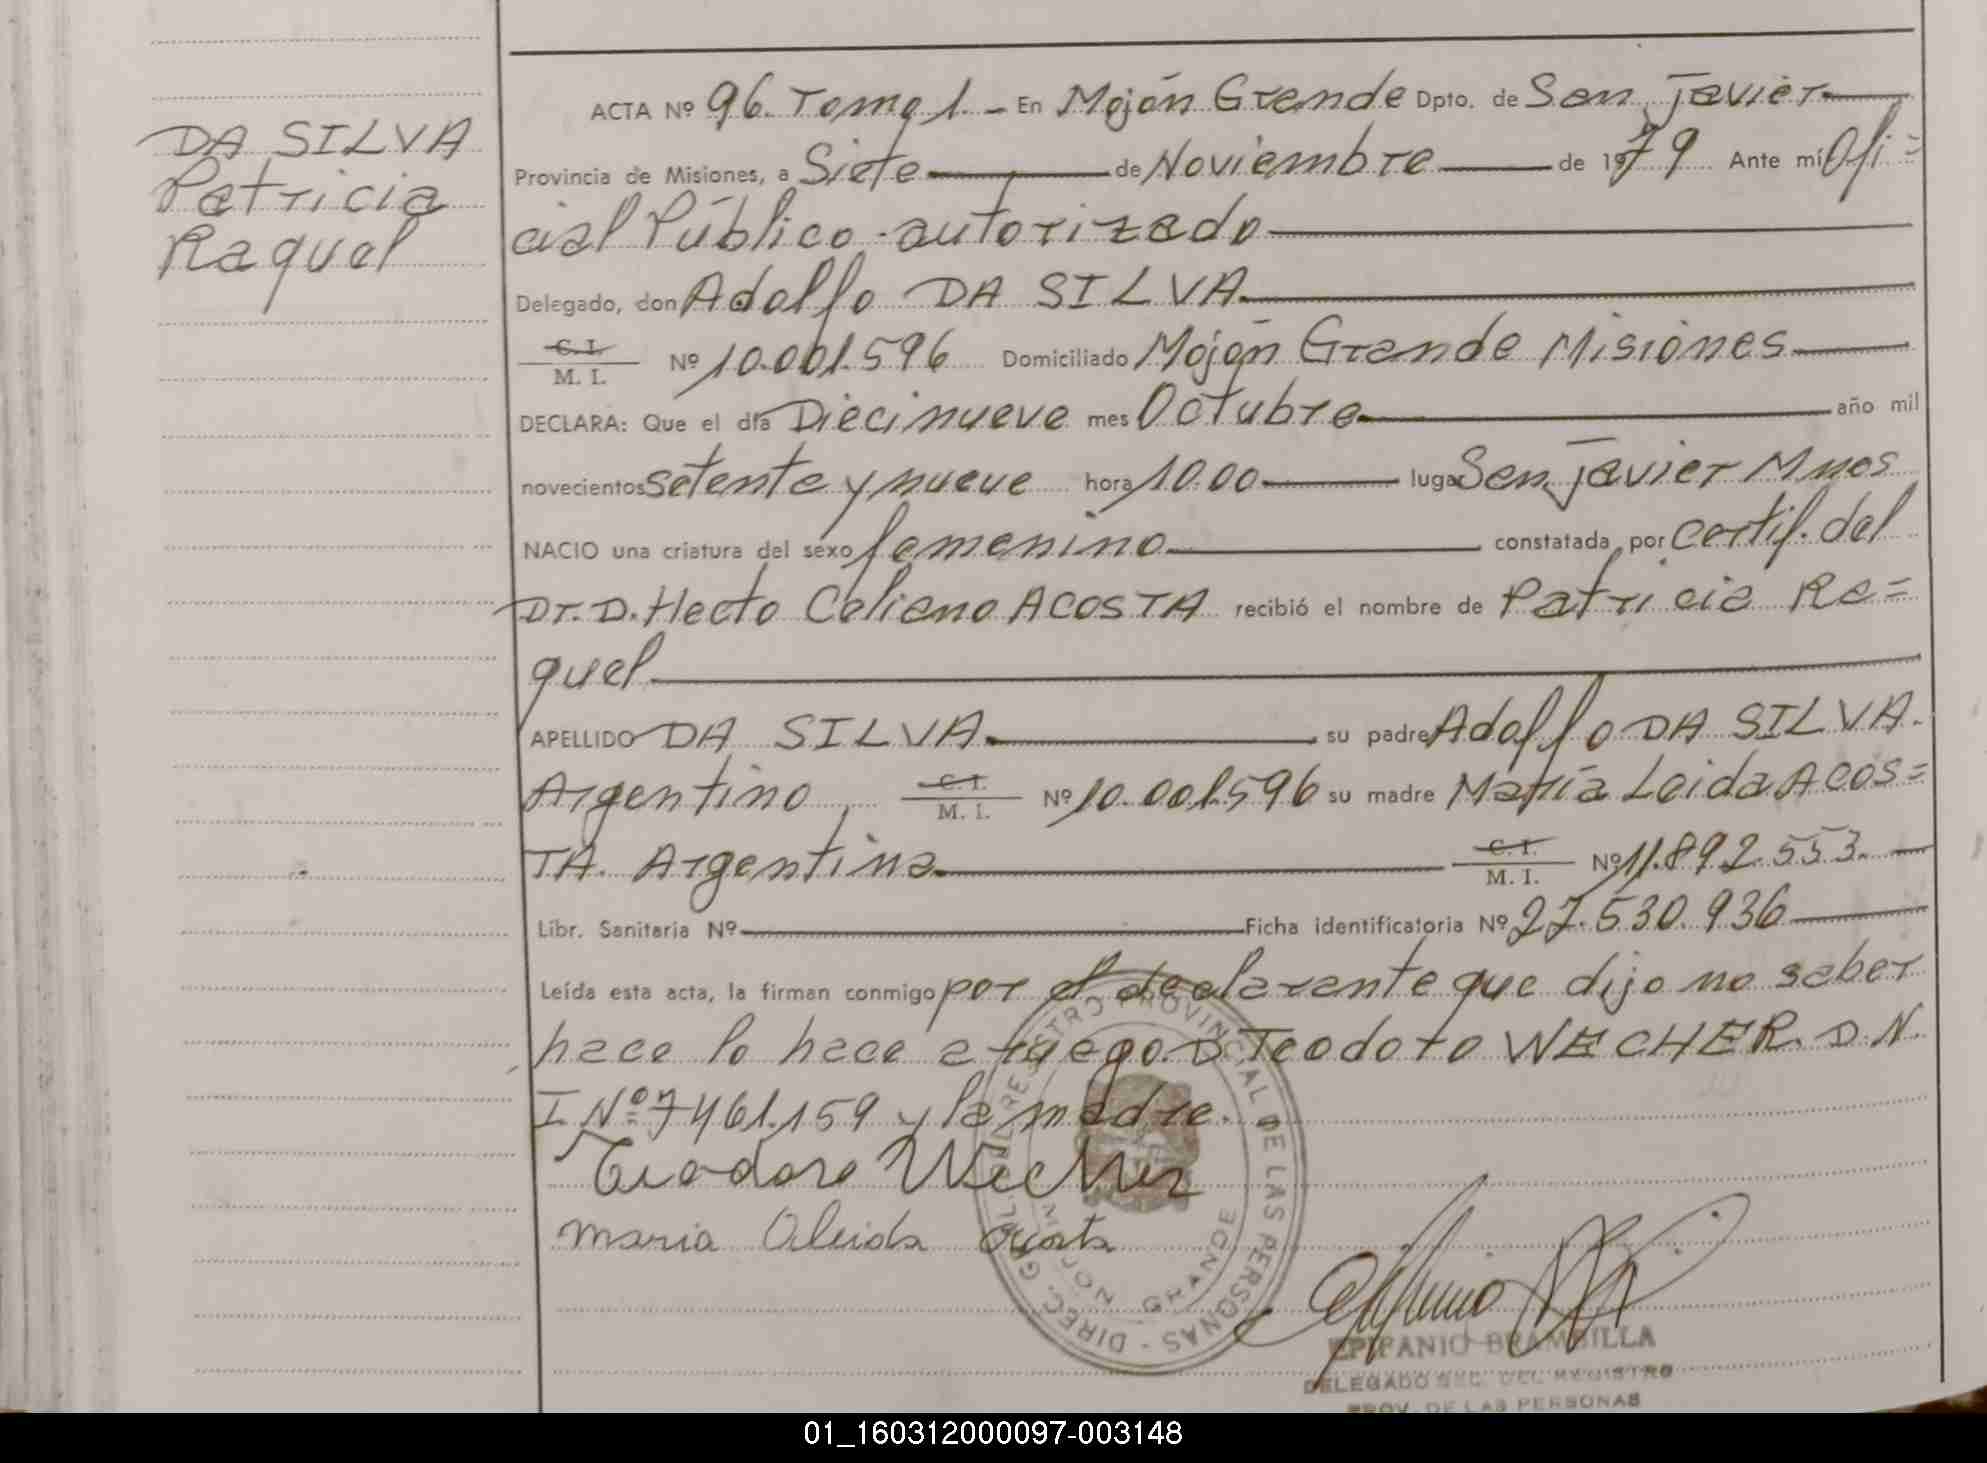 DA SILVA
Patricia
Raquel
ACTA Nº 96. Tomo 1. - En Mojón Grande Dpto. de San Javier
Provincia de Misiones, a Siete de Noviembre de 1979 Ante mí Ofi=
cial Público autorizado
Delegado, don Adolfo DA SILVA
C. I.
M. I. Nº 10.001.596 Domiciliado Mojón Grande Misiones
DECLARA: Que el día Diecinueve mes Octubre año mil
novecientos setenta y nueve hora 10.00 lugar San Javier Mnes
NACIO una criatura del sexo femenino constatada por Certif. del
Dr. D. Hecto Celiano ACOSTA recibió el nombre de Patricia Ra=
quel
APELLIDO DA SILVA su padre Adolfo DA SILVA.
Argentino C. I. M. I. Nº 10.001.596 su madre María Leida ACOS=
TA. Argentina C. I. M. I. Nº 11.892.553.
Libr. Sanitaria Nº Ficha identificatoria Nº 27.530.936
Leída esta acta, la firman conmigo por el declarante que dijo no saber
hace lo hace a ruego. D Teodoro WECHER. D.N.
I Nº 7461.159 y la madre.
Teodoro Wecher
maria Oleida Acosta
DIREC. GRAL. REGISTRO PROVINCIAL DE LAS PERSONAS
MOJON GRANDE
EPIFANIO BRAMBILLA
DELEGADO SEC. DEL REGISTRO
PROV. DE LAS PERSONAS
01_160312000097-003148